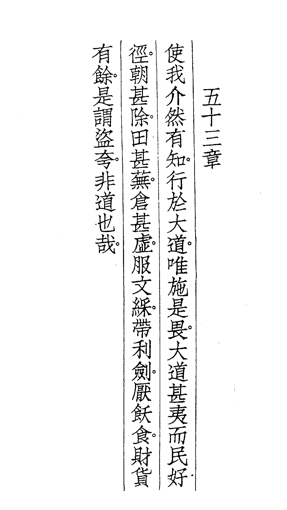 五十三章
使我介然有知。行於大道。唯施是畏。大道甚夷而民好
徑。朝甚除。田甚蕪。倉甚虛。服文綵。帶利劍。厭飫食。財貨
有餘。是謂盜夸。非道也哉。